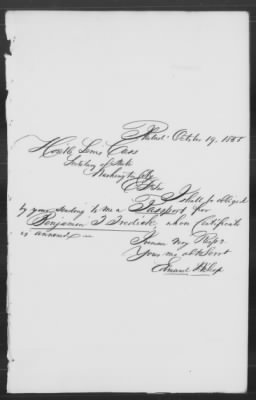 Philad. October 19, 1858
Honble Lewis Cass
Secretary of State
Washington City
Sir
I shall be obliged
by your sending to me a Passport for
Benjamin T. whose Certificate
is annexed —
I remain Very Respy
Your mo obt Servt